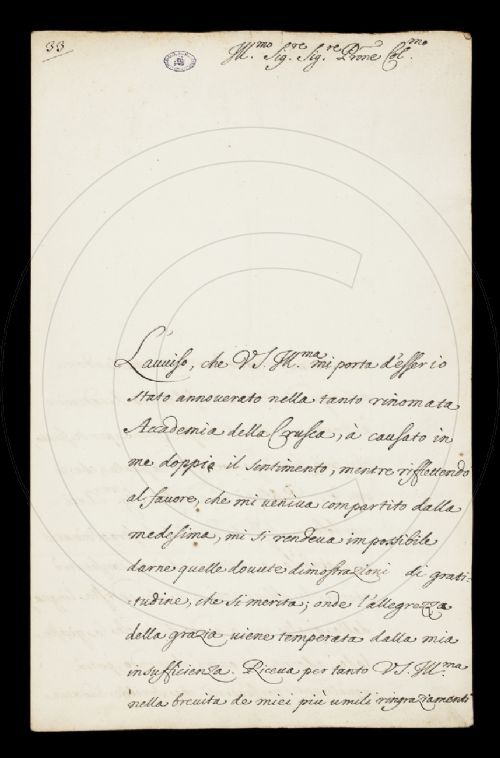 33
Ill.mo Sig.re Sig.re P̃rone Col.mo
L'auuiso, che V. S. Ill.ma mi porta d'esser io
stato annouerato nella tanto rinomata
Accademia della Crusca, à causato in
me doppio il sentimento, mentre riflettendo
al fauore, che mi ueniua compartito dalla
medesima, mi si rendeua impossibile
darne quelle douute dimostrazioni di grati-
:tudine, che si merita; onde l'allegrezza
della grazia uiene temperata dalla mia
insufficienza. Riceua per tanto V. S. Ill.ma
nella breuita de miei più umili ringraziamenti